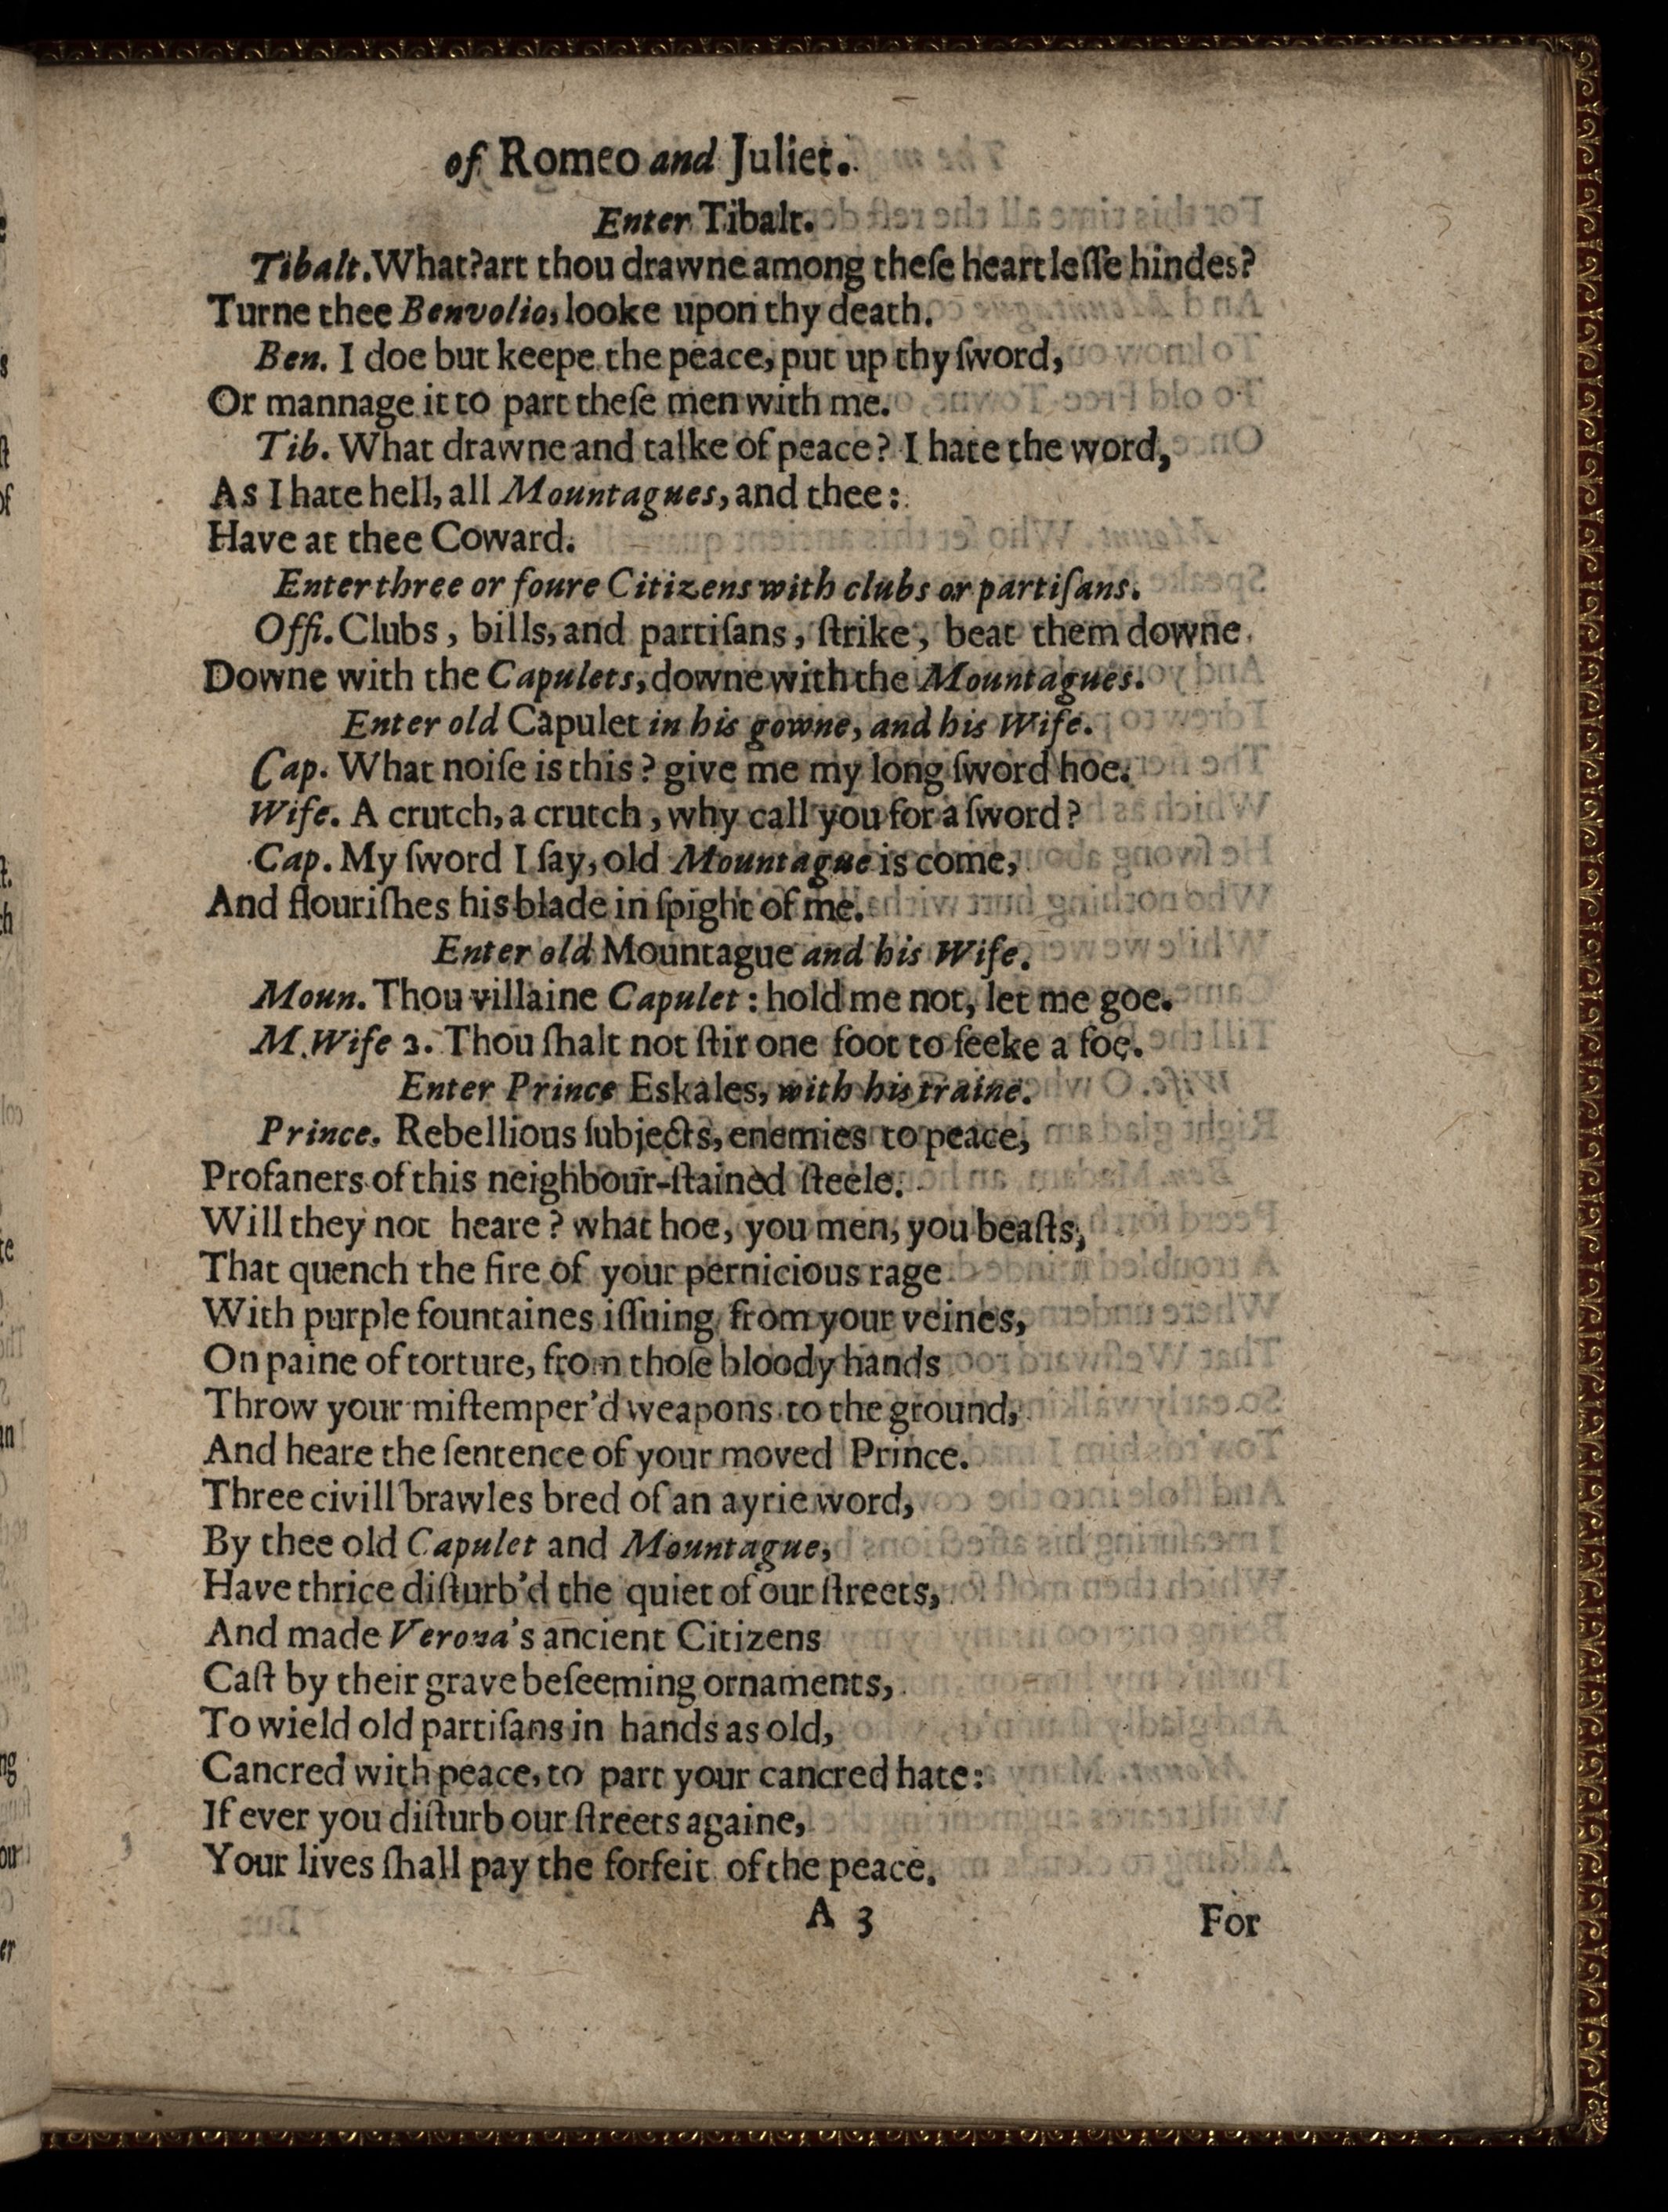 of Romeo and Juliet.
Enter Tibalt.
Tibalt. What? art thou drawne among theſe heartleſſe hindes?
Turne thee Benvolio, looke upon thy death.
Ben. I doe but keepe the peace, put up thy ſword,
Or mannage it to part theſe men with me.
Tib. What drawne and talke of peace? I hate the word,
As I hate hell, all Mountagues, and thee:
Have at thee Coward.
Enter three or foure Citizens with clubs or partiſans.
Offi. Clubs, bills, and partiſans, ſtrike, beat them downe
Downe with the Capulets, downe with the Mountagues.
Enter old Capulet in his gowne, and his Wife.
Cap. What noiſe is this? give me my long ſword hoe.
Wife. A crutch, a crutch, why call you for a ſword?
Cap. My ſword I ſay, old Mountague is come,
And flouriſhes his blade in ſpight of me.
Enter old Mountague and his Wife.
Moun. Thou villaine Capulet: hold me not, let me goe.
M. Wife 2. Thou ſhalt not ſtir one foot to ſeeke a foe.
Enter Prince Eskales, with his traine.
Prince. Rebellious ſubjects, enemies to peace,
Profaners of this neighbour-ſtained ſteele.
Will they not heare? what hoe, you men, you beaſts,
That quench the fire of your pernicious rage
With purple fountaines iſſuing from your veines,
On paine of torture, from thoſe bloody hands
Throw your miſtemper'd weapons to the ground,
And heare the ſentence of your moved Prince.
Three civill brawles bred of an ayrie word,
By thee old Capulet and Mountague,
Have thrice diſturb'd the quiet of our ſtreets,
And made Verona's ancient Citizens
Caſt by their grave beſeeming ornaments,
To wield old partiſans in hands as old,
Cancred with peace, to part your cancred hate:
If ever you diſturb our ſtreets againe,
Your lives ſhall pay the forfeit of the peace.
A 3 For